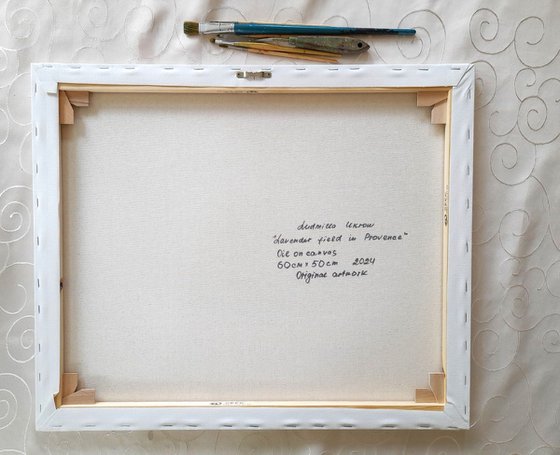 Ludmilla Ukrow
"Lavender field in Provence"
Oil on canvas
60cm x 50cm 2024
Original artwork